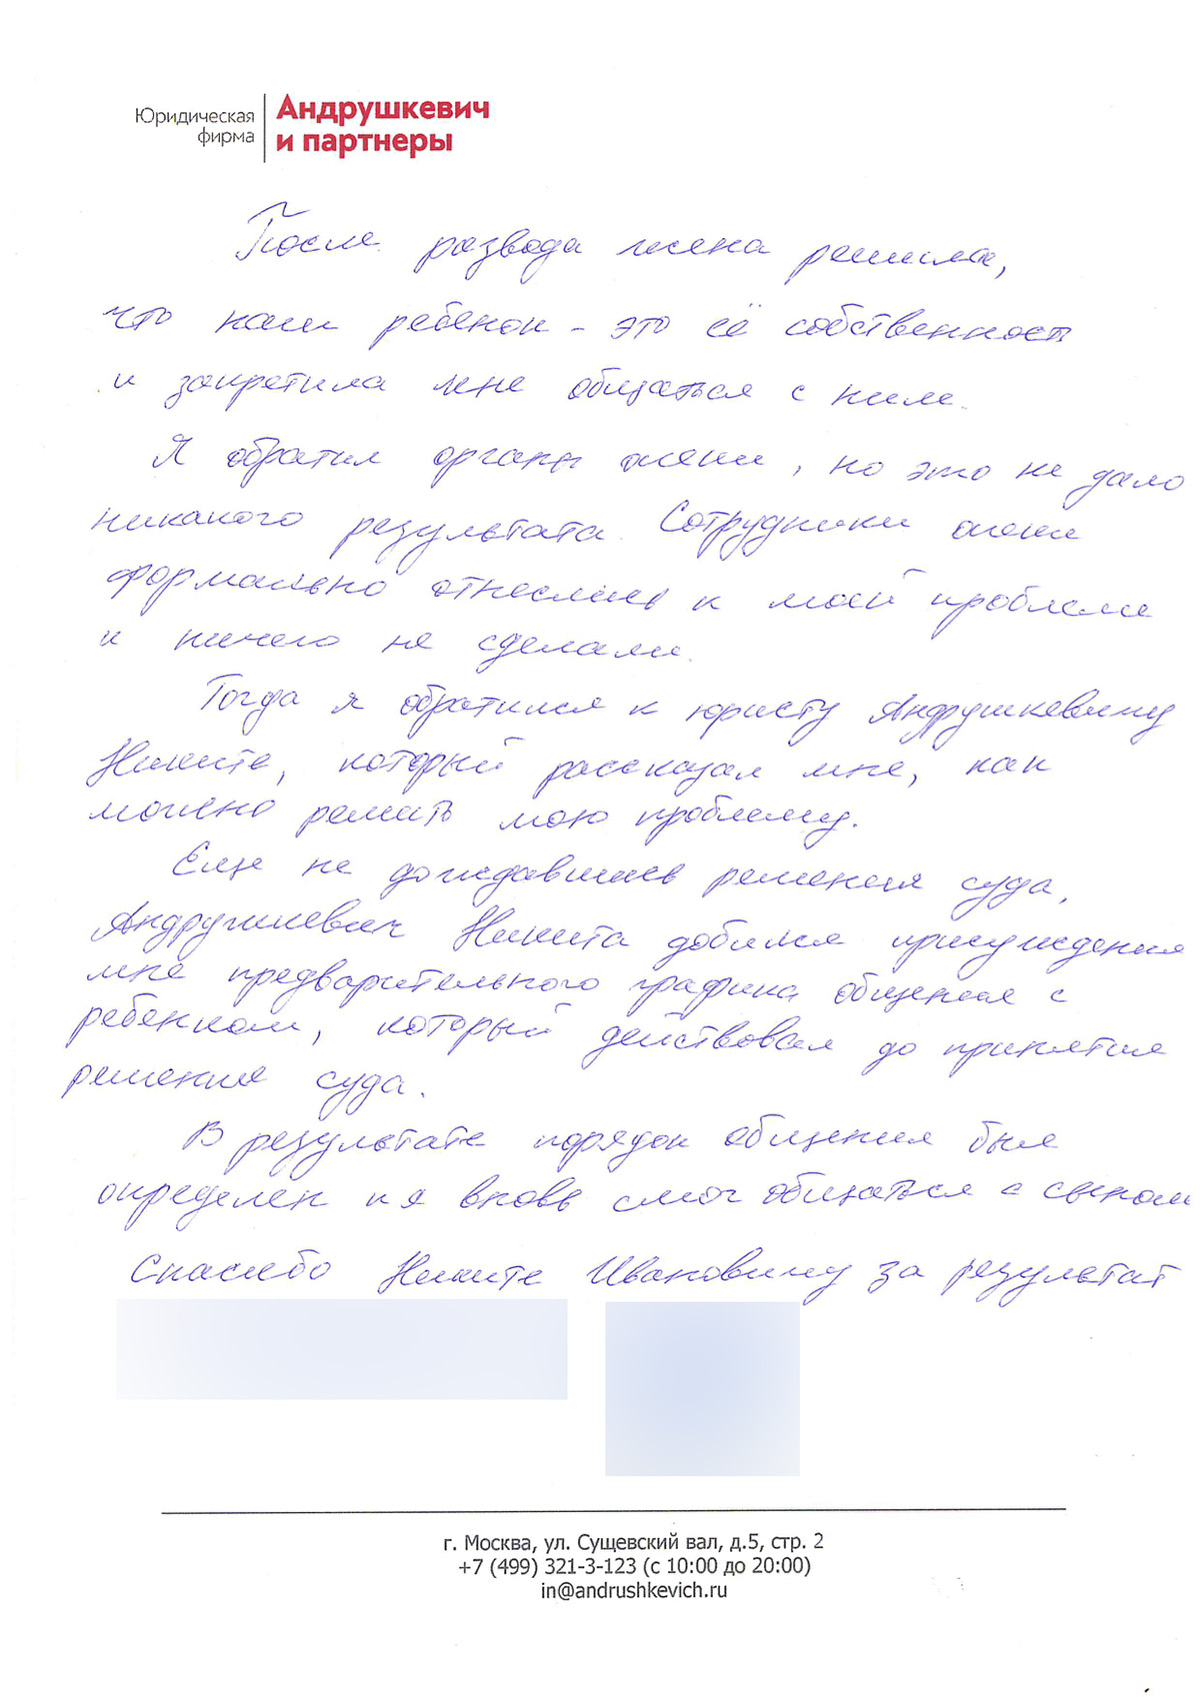 Юридическая
фирма
Андрушкевич
и партнеры
После развода жена решила,
что наш ребенок - это её собственность
и запретила мне общаться с ним.
Я обратил органы опеки, но это не дало
никакого результата. Сотрудники опеки
формально отнеслись к моей проблеме
и ничего не сделали.
Тогда я обратился к юристу Андрушкевичу
Никите, который рассказал мне, как
можно решить мою проблему.
Еще не дождавшись решения суда,
Андрушкевич Никита добился присуждения
мне предварительного графика общения с
ребенком, который действовал до принятия
решения суда.
В результате порядок общения был
определен и я вновь смог общаться с сыном
Спасибо Никите Ивановичу за результат
г. Москва, ул. Сущевский вал, д.5, стр. 2
+7 (499) 321-3-123 (с 10:00 до 20:00)
in@andrushkevich.ru